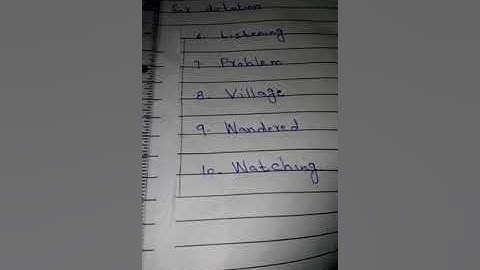 dictation
6. Listening
7. Problem
8. Village
9. Wandered
10. Watching